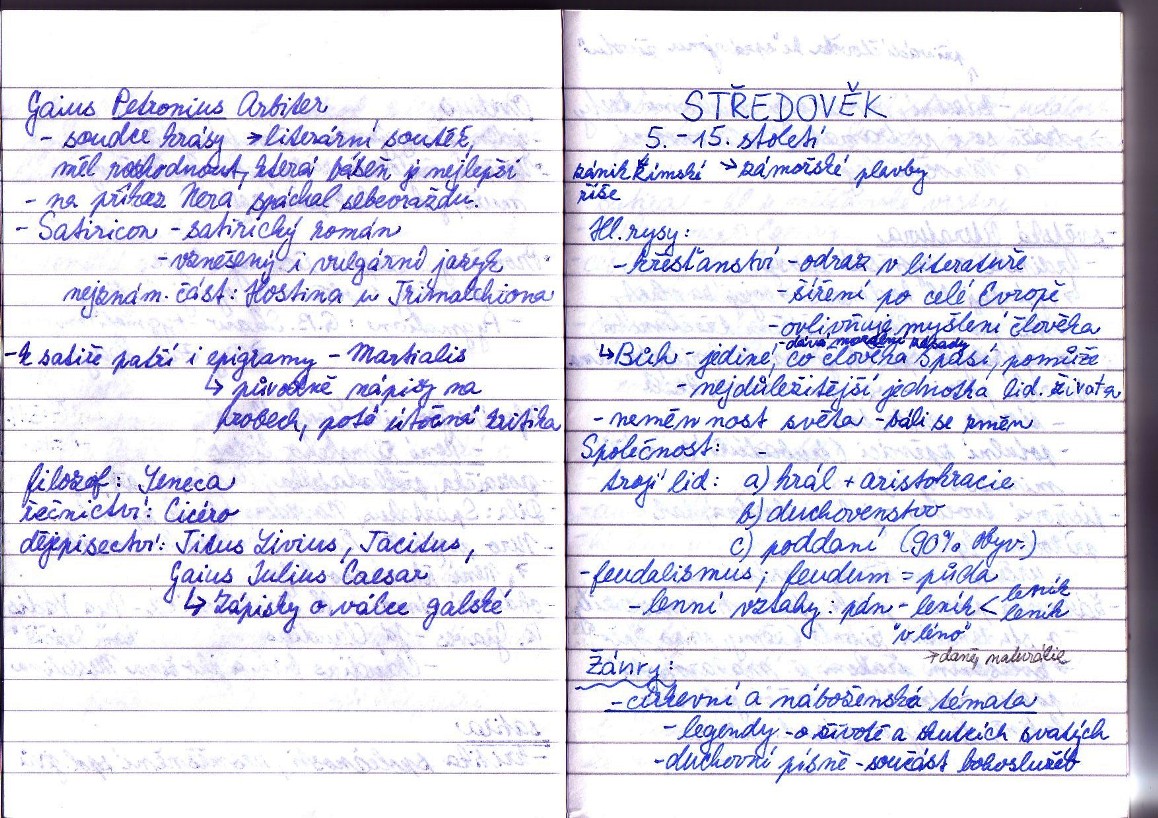 Gaius Petronius Arbiter
- soudce krásy → literární soutěž,
měl rozhodnout, která báseň je nejlepší
- na příkaz Nera spáchal sebevraždu.
- Satiricon - satirický román
- vznešený i vulgární jazyk
nejznám. část: Hostina u Trimalchiona
- k satiře patří i epigramy - Martialis
↳ původně nápisy na
hrobech, poté útočná kritika
filozof: Seneca
řečnictví: Cicéro
dějepisectví: Titus Livius, Tacitus,
Gaius Julius Caesar
↳ Zápisky o válce galské
STŘEDOVĚK
5. - 15. století
zánik Římské → zámořské plavby
říše
Hl. rysy:
- křesťanství - odraz v literatuře
- šíření po celé Evropě
- ovlivňuje myšlení člověka
- dává morální zásady
↳ Bůh - jediné, co člověka spasí, pomůže
- nejdůležitější jednotka lid. života
- neměnnost světa - báli se změn
Společnost:
trojí lid: a) král + aristokracie
b) duchovenstvo
c) poddaní (90% obyv.)
- feudalismus; feudum = půda
- lenní vztahy: pán - leník < leník
leník
"v léno"
→ daně, naturálie
Žánry:
- církevní a náboženská témata
- legendy - o životě a skutcích svatých
- duchovní písně - součást bohoslužeb